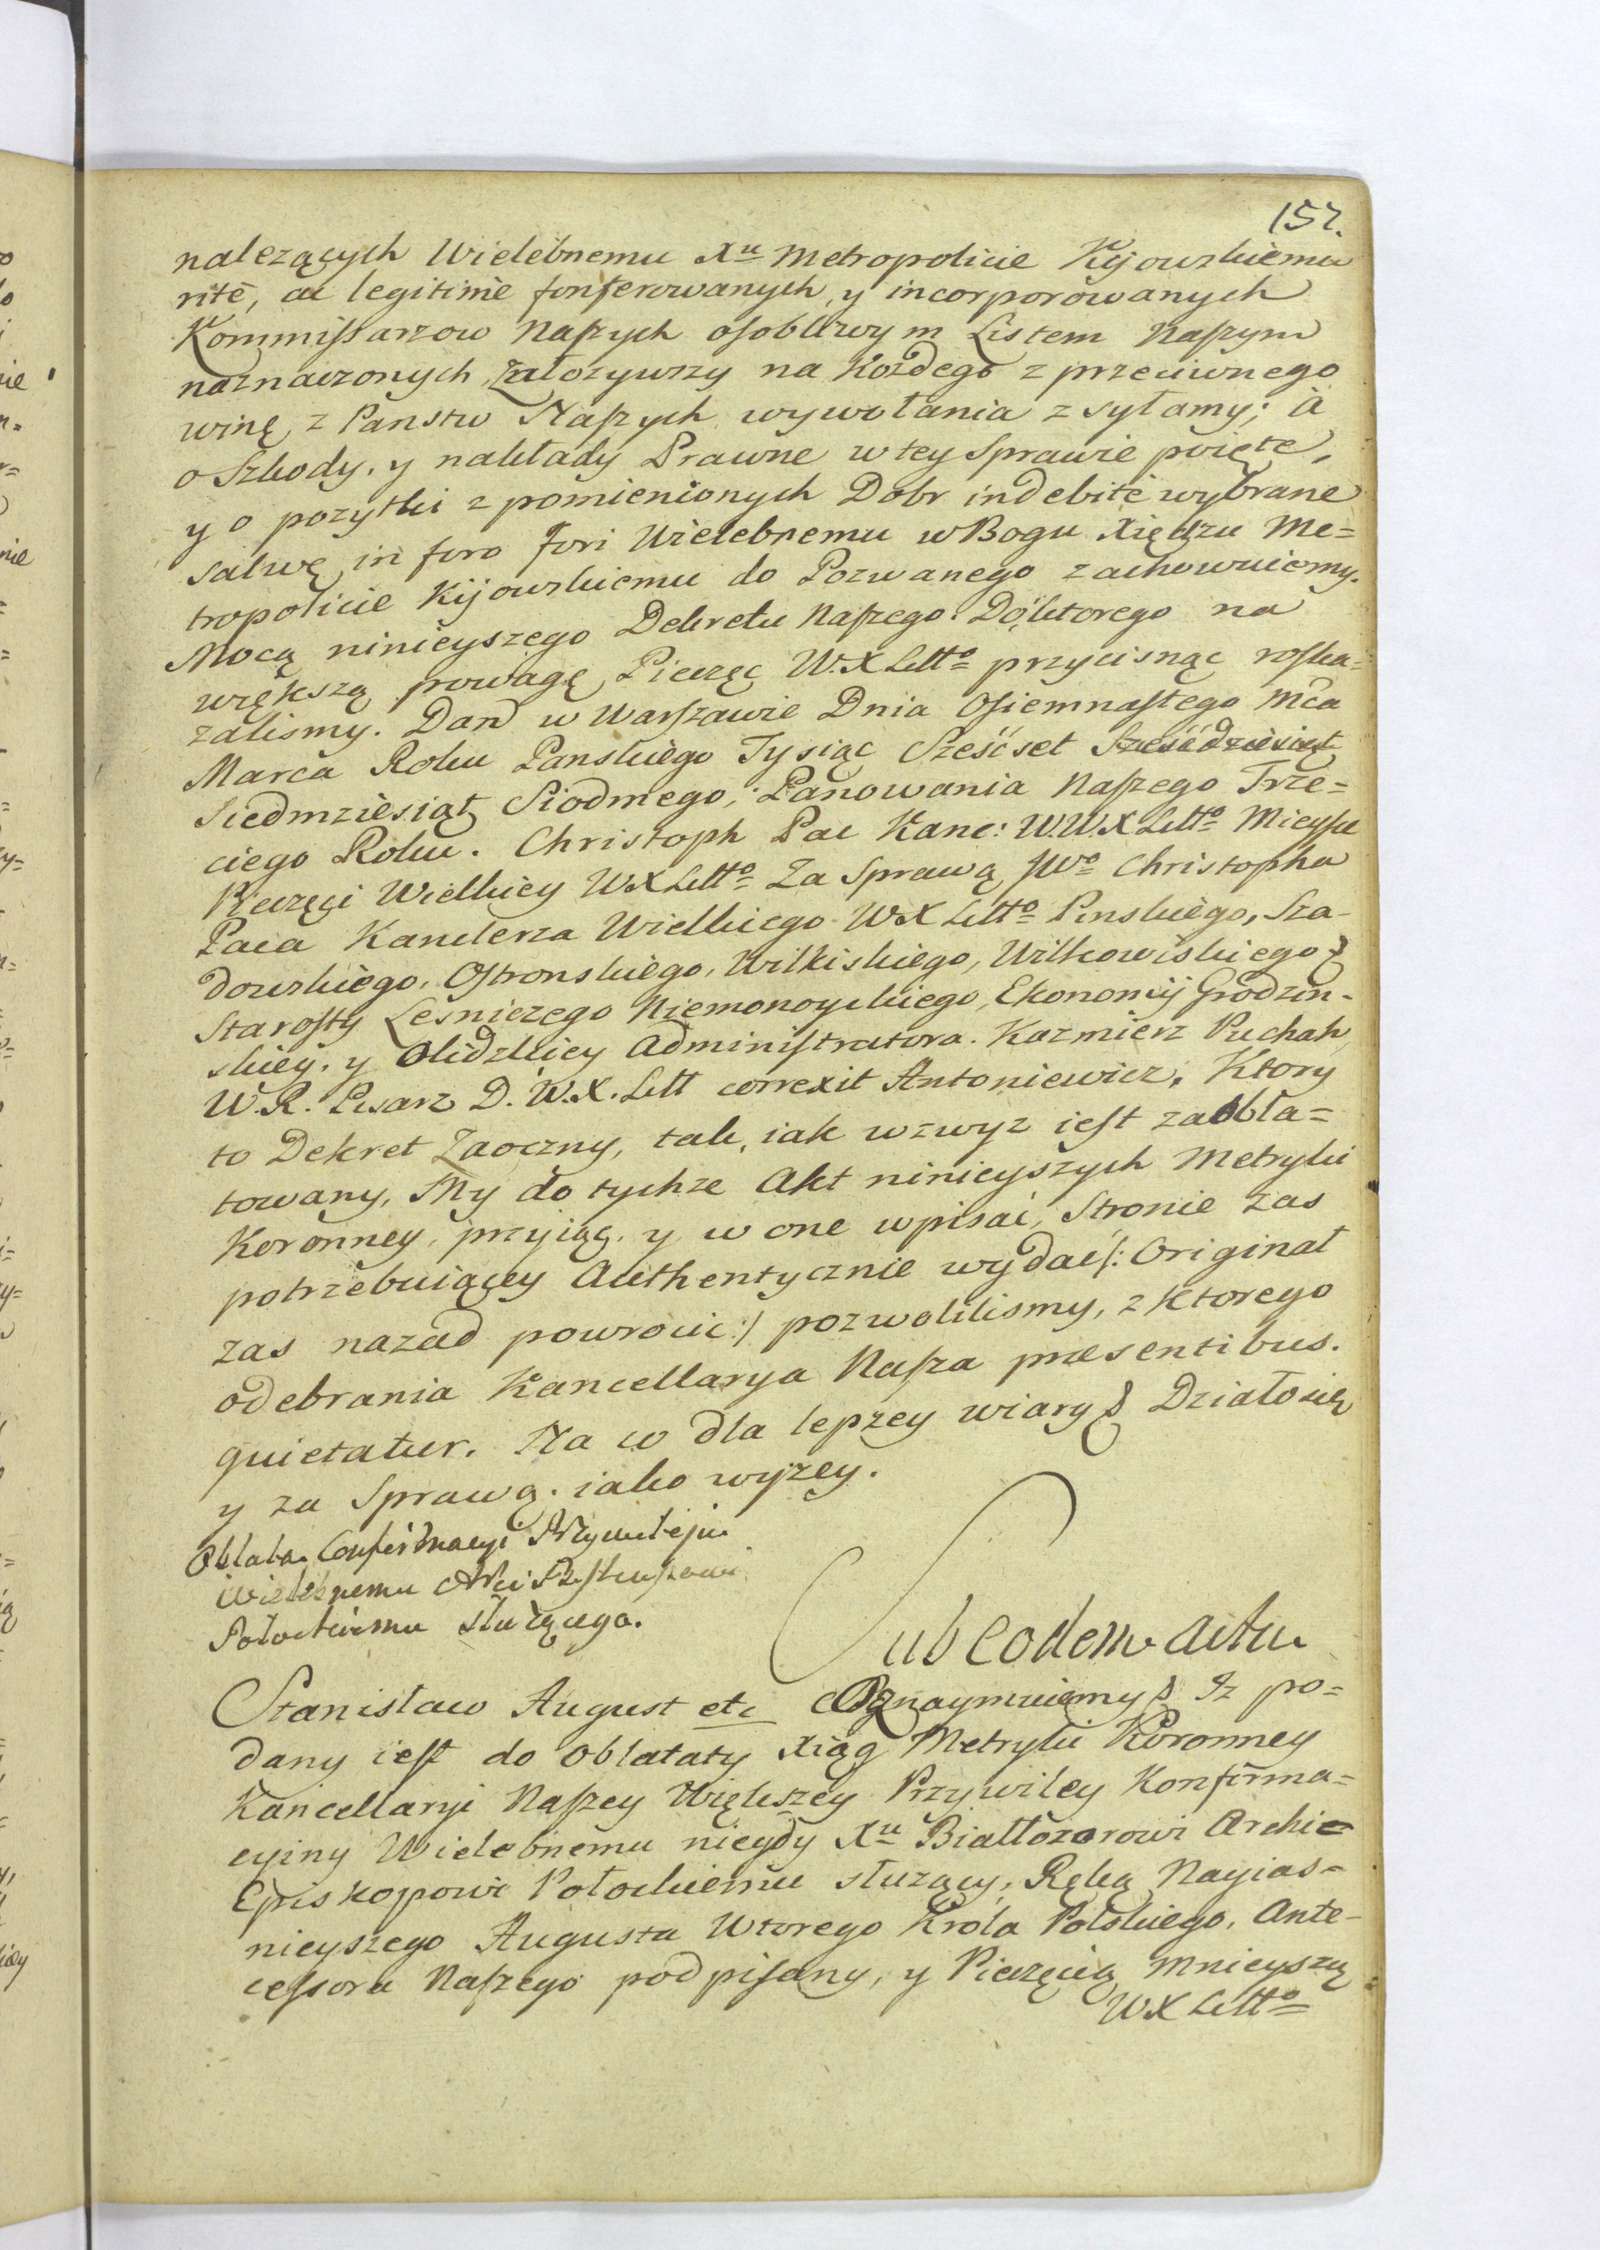 157.
nalezących Wielebnemu Xu Metropolicie Kijowskiemu
ritè, ac legitimè konferowanych, y incorporowanych
Kommissarzow Naszych osobliwym Listem Naszym
naznaczonych, Załozywszy na Kozdego z przeciwnego
winę, z Panstw Naszych wywołania zsyłamy; à
o Szkody, y nakłady Prawne w tey Sprawie poięte,
y o pozytki z pomienionych Dobr indebitè wybrane
salwę in foro fori Wielebnemu w Bogu Xiędzu Me=
tropolicie Kijowskiemu do Pozwanego zachowuiemy.
Mocą ninieyszego Dekretu Naszego. Do ktorego na
większą powagę, Pieczęc W.X Littº przycisnąc roska=
zalismy. Dan w Warszawie Dnia Osiemnastego Mca
Marca Roku Panskiego Tysiąc Sześćset Sześćdziesiąt
Siedmziesiąt Siodmego, Panowania Naszego Trze=
ciego Roku. Christoph Pac Kanc: W.W.X Littº Mieysce
Pieczęci Wielkiey WX Littº Za Sprawą JWº Christopha
Paca Kanclerza Wielkiego WX Littº Pinskiego, Sza-
dowskiego, Ostronskiego, Wilkiskiego, Wilkowiskiego &
Starosty Lesniczego Niemonoyckiego, Ekonomij Grodzin-
skiey, y Olidzkiey Administratora. Kazmierz Puchah,
W.R. Pisarz D.W.X.Litt correxit Antoniewicz. Ktory
to Dekret Zaoczny, tak, iak wzwyz iest zaobla=
towany, My do tychze Akt ninieyszych Metryki
Koronney, przyiąc, y w one wpisać, Stronie zas
potrzebuiącey Authentycznie wydać /: Originał
zas nazad powrocic :/ pozwolilismy, z Ktorego
odebrania Kancellarya Nasza præsentibus.
quietatur. Na co dla lepszey wiary & Działo się
y za Sprawą. iako wyzey.
Oblata Confirmacyi Przywileju
Wielebnemu
Połockiemu słuzącego.
Sub eodem actu
Stanisław August etc Oznaymuiemy & Iz po=
dany iest do Oblataty Xiąg Metryki Koronney
Kancellaryi Naszey Większey Przywiley Konfirma=
cyiny Wielebnemu niegdy Xu Białłozorowi Archie=
Episkopowi Połockiemu słuzący, Ręką Nayias=
nieyszego Augusta Wtorego Króla Polskiego, Ante-
cessora Naszego podpisany, y Pieczęcią Mnieyszą
WX Littº